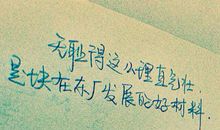 无耻得这么理直气壮
是块在东厂发展的好材料.